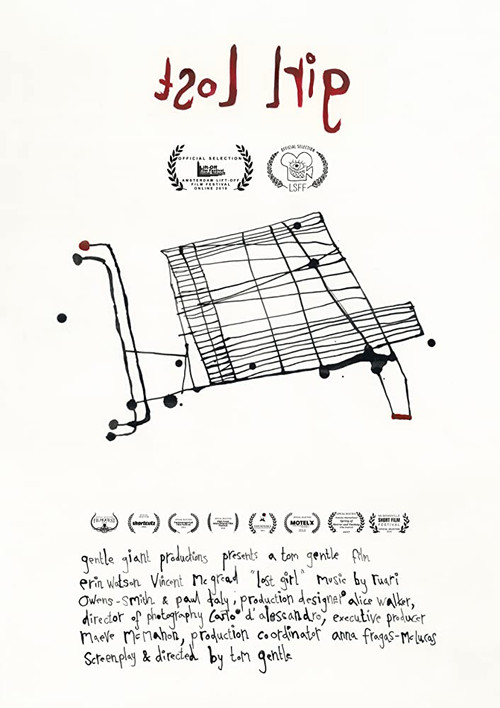 Lost girl
OFFICIAL SELECTION
AMSTERDAM LIFT-OFF
FILM FESTIVAL
OFFICIAL SELECTION
LSFF
shortcutz
MOTELX
SHORT FILM
FESTIVAL
gentle giant productions presents a tom gentle film
erin watson Vincent McGread "lost girl" music by ruari
Owens-Smith & paul daly, production designer alice walker,
director of photography Carlo d'alessandro, executive producer
Maeve McMahon, production coordinator anna fragas-McLucas
Screenplay & directed by tom gentle